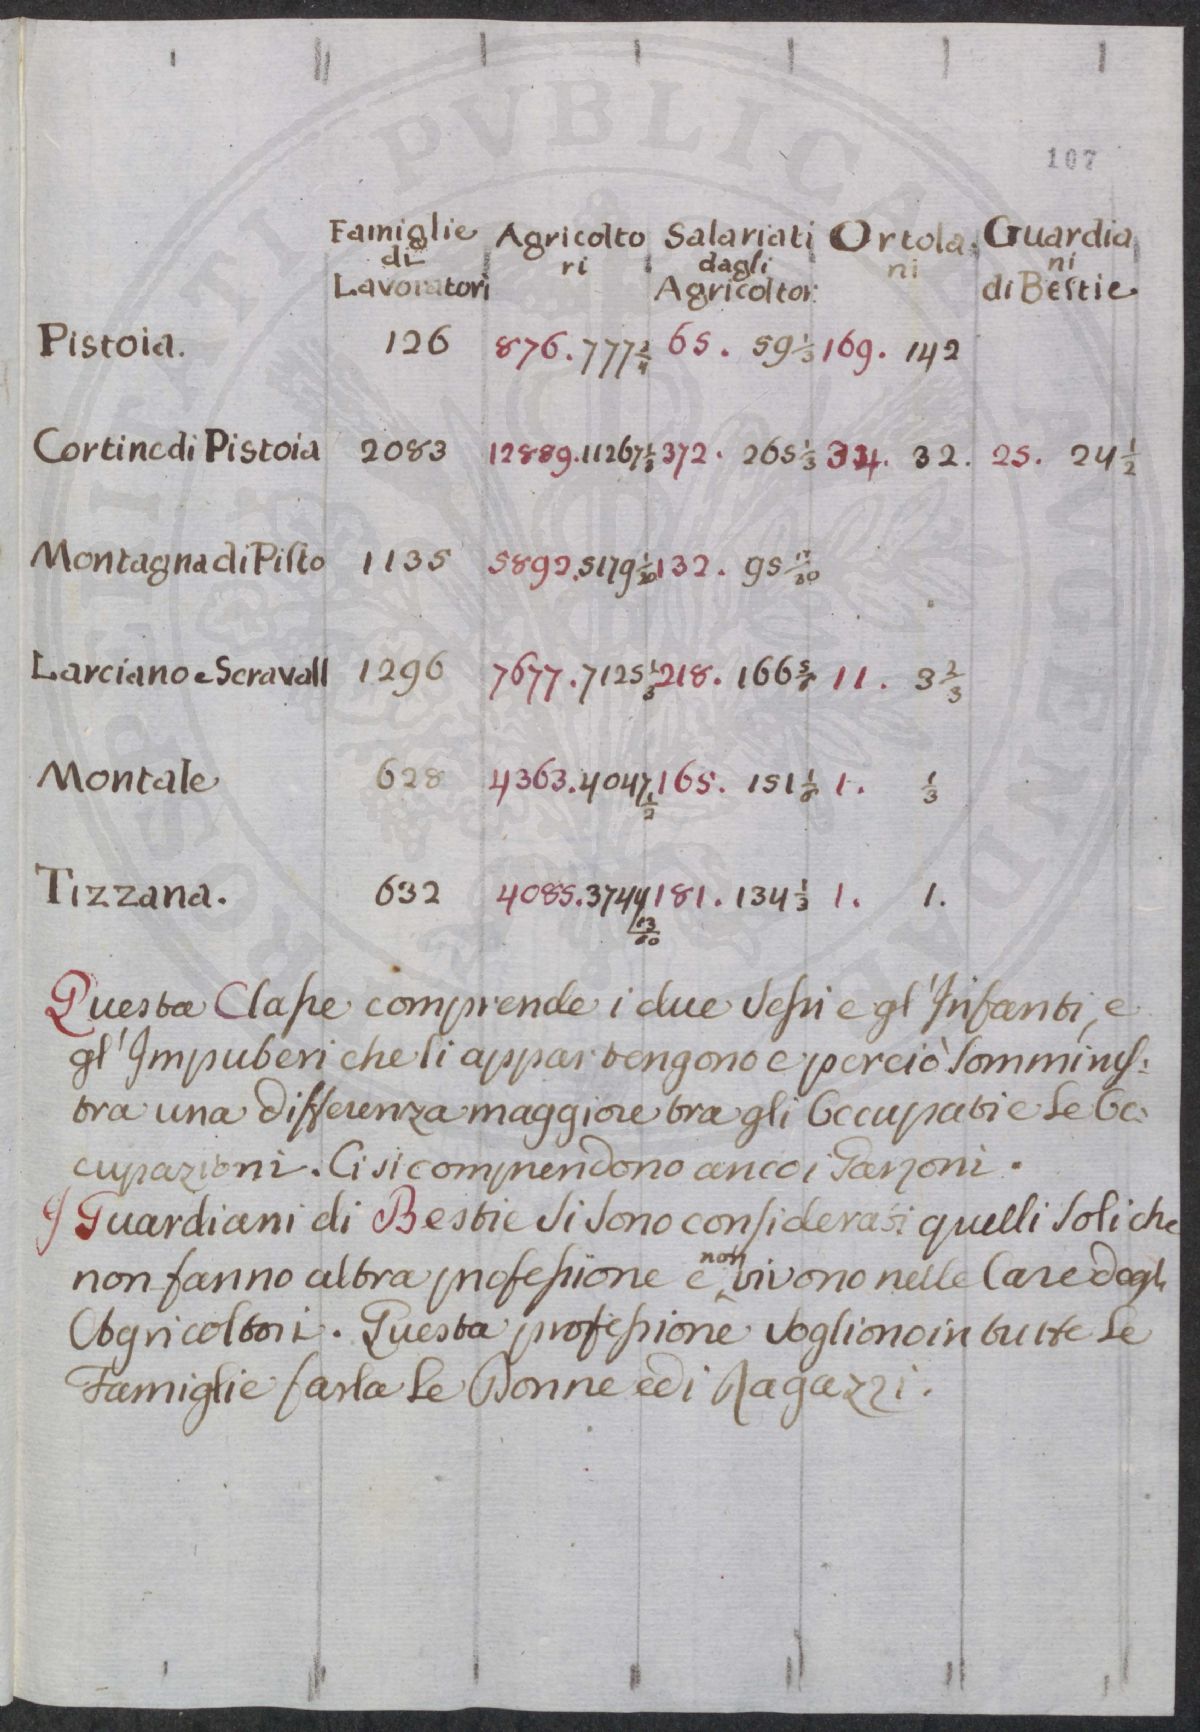 107
Famiglie Agricolto Salariati Ortola: Guardia
di ri dagli ni ni
Lavoratori Agricoltor: di Bestie.
Pistoia. 126 876. 777 65. 59 1/3 169. 142
Cortine di Pistoia 2083 12889. 11267 1/3 372. 265 1/3 34. 32. 25. 24 1/2
Montagna di Pisto 1135 5892. 5179 1/20 132. 95
Larciano e Seravall 1296 7677. 7125 1/3 218. 166 11. 3 2/3
Montale 628 4363. 4047 1/2 165. 151 1. 1/3
Tizzana. 632 4085. 3744 181. 134 1/3 1. 1.
Questa Classe comprende i due Sessi e gl' Infanti, e
gl' Impuberi che li appartengono e perciò somminis:
tra una differenza maggiore tra gli Occupati e le Oc:
cupazioni. Ci si comprendono anco i Garzoni.
I Guardiani di Bestie si sono considerati quelli soli che
non fanno altra professione e non vivono nelle Case degl
Agricoltori. Questa professione sogliono in tutte le
Famiglie farla le Donne ed i Ragazzi.
PVBLICAE